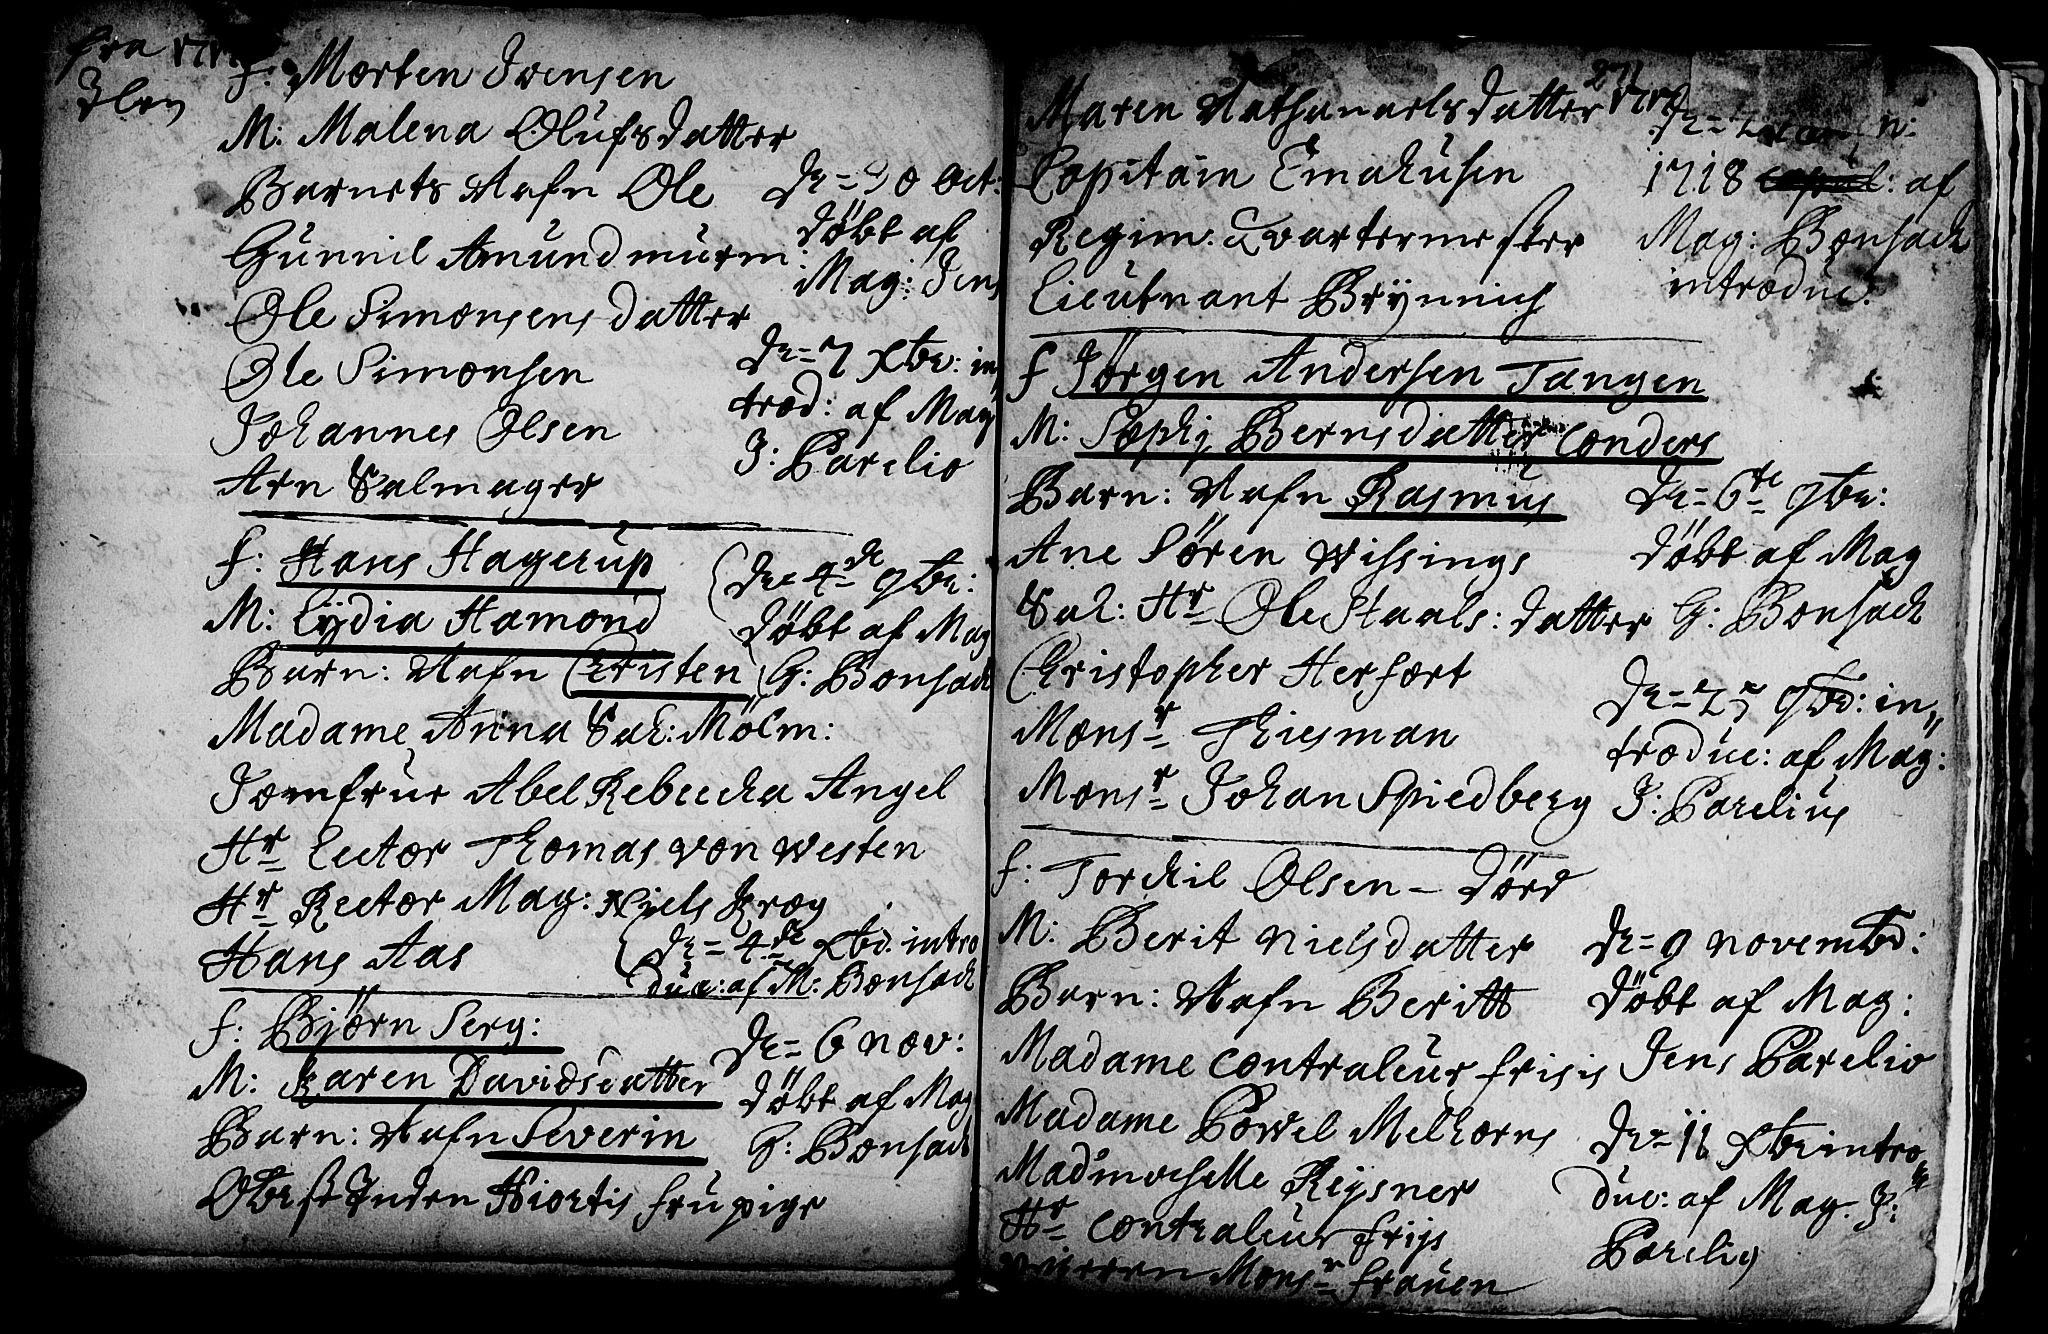 fra
Ilen
f: Morten Ivensen
M: Malena Olufsdatter
Barnets Nafn Ole
Gunnil Amundmurm:
Ole Simonsens datter
Ole Simonsen
Johannes Olsen
Arn Salmager
dn= 30 Oct:
döbt af
Mag: Jens
dn= 7 Xbr: in
trod: af Mag
J: Parelio
f: Hans Hagerup
M: Lÿdia Hamond
Barn: Nafn Christen
Madame Anna Sal: Molm:
Jomfrue Abel Rebecka Angel
Hr Lector Thomas von Westen
Hr Rector Mag: Niels Krog
Hans Aas
dn= 4de 9br:
döbt af Mag
G: Bonsach
dn= 4de Xbr. intro
duc: af M: Bonsach
f: Björn Serg:
M: Karen Davidsdatter
Barn: Nafn Severin
Obrist Hiortis fru pige
dn= 6 nov:
döbt af Mag
G: Bonsach
271
Maren Nathanaelsdatter
Capitain Emahusen
Regim: Qvartermester
Lieutnant Brÿnnich
1718 af
Mag: Bonsach
introduc:
f Jörgen Andersen Tangen
M: Sophj Berns datter Conders
Barn: Nafn Rasmus
Ane Sören Wissings
Sal: Hr Ole Staals: datter
Christopher Herfort
Monsr Thiesman
Monsr Johan Spiedberg
dn= 6te 9br:
döbt af Mag
G: Bonsach
dn= 9br: in,,
troduc: af Mag:
J: Parelius
f: Torckil Olsen – Dörd
M: Berit Nielsdatter
Barn: Nafn Beritt
Madame Contraleur frisis
Madame Powel Melhorns
Madmoiselle Reÿsner
Hr Contraleur frijs
Monsr frauen
dn= 9 novembr:
döbt af Mag:
Jens Parelio
dn= 11 Xbr intro
duc: af Mag. J:
Parelio